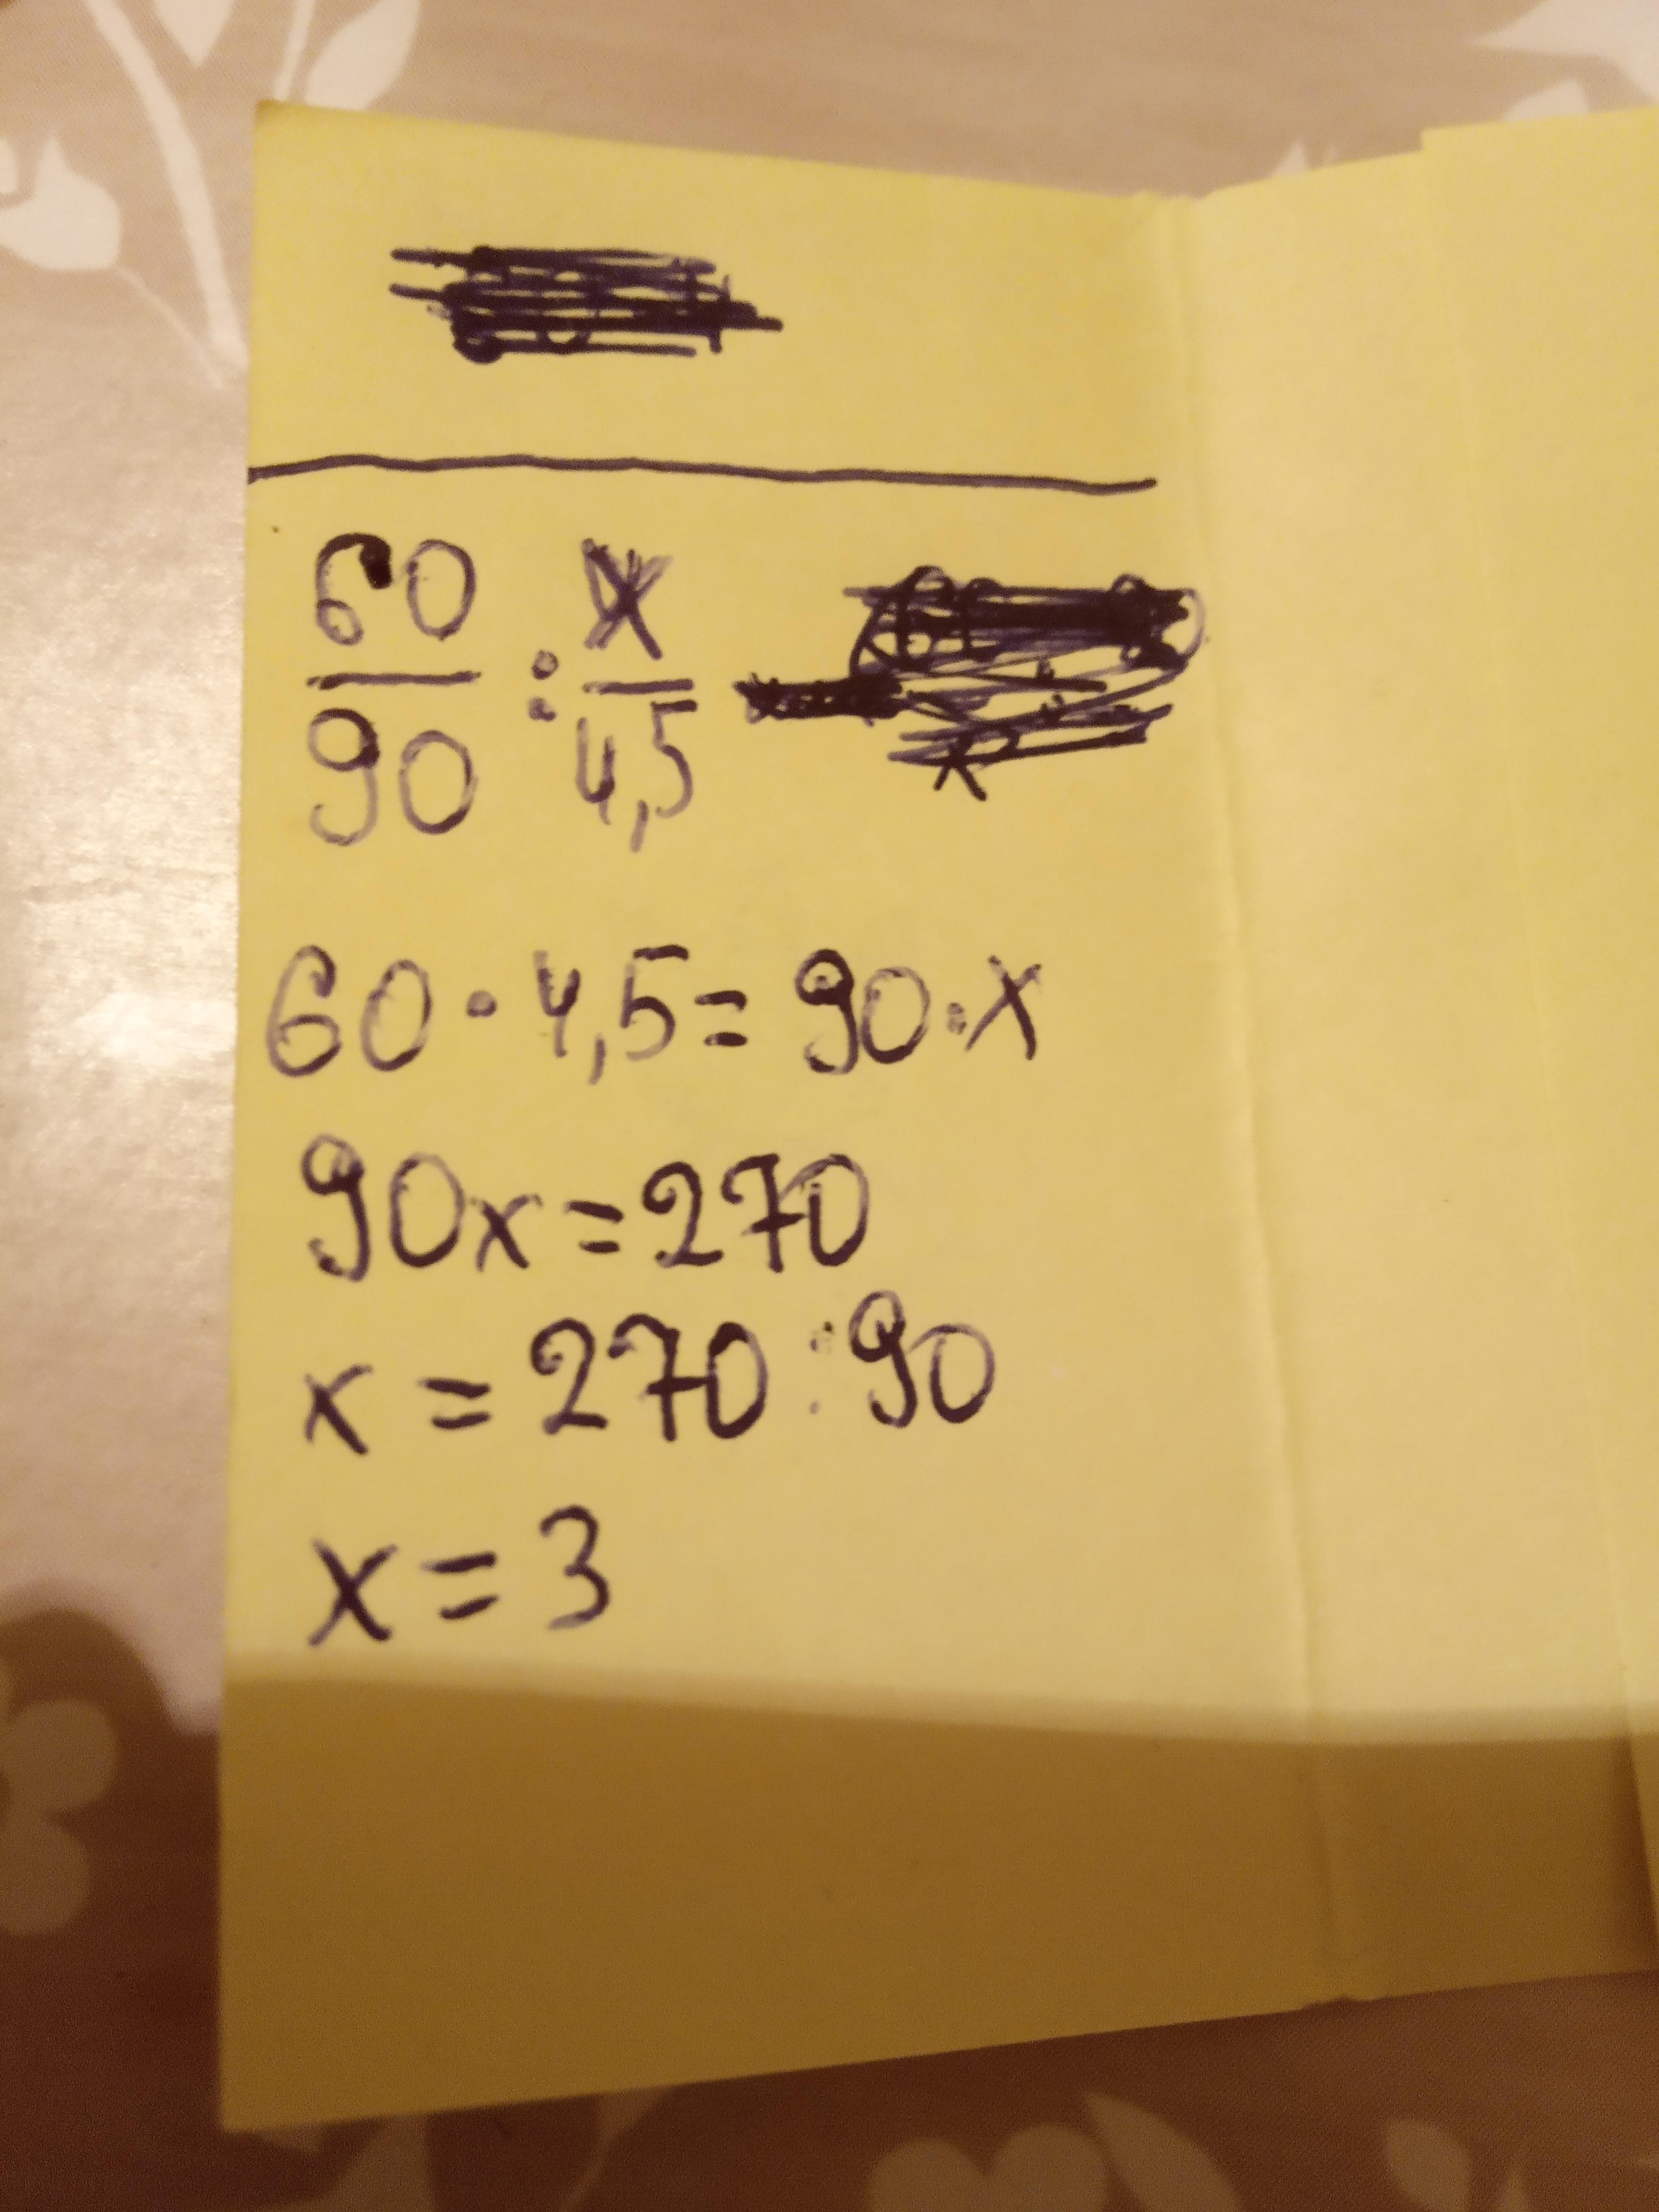 60/90 : x/4,5
60 · 4,5 = 90 · x
90x = 270
x = 270 : 90
x = 3